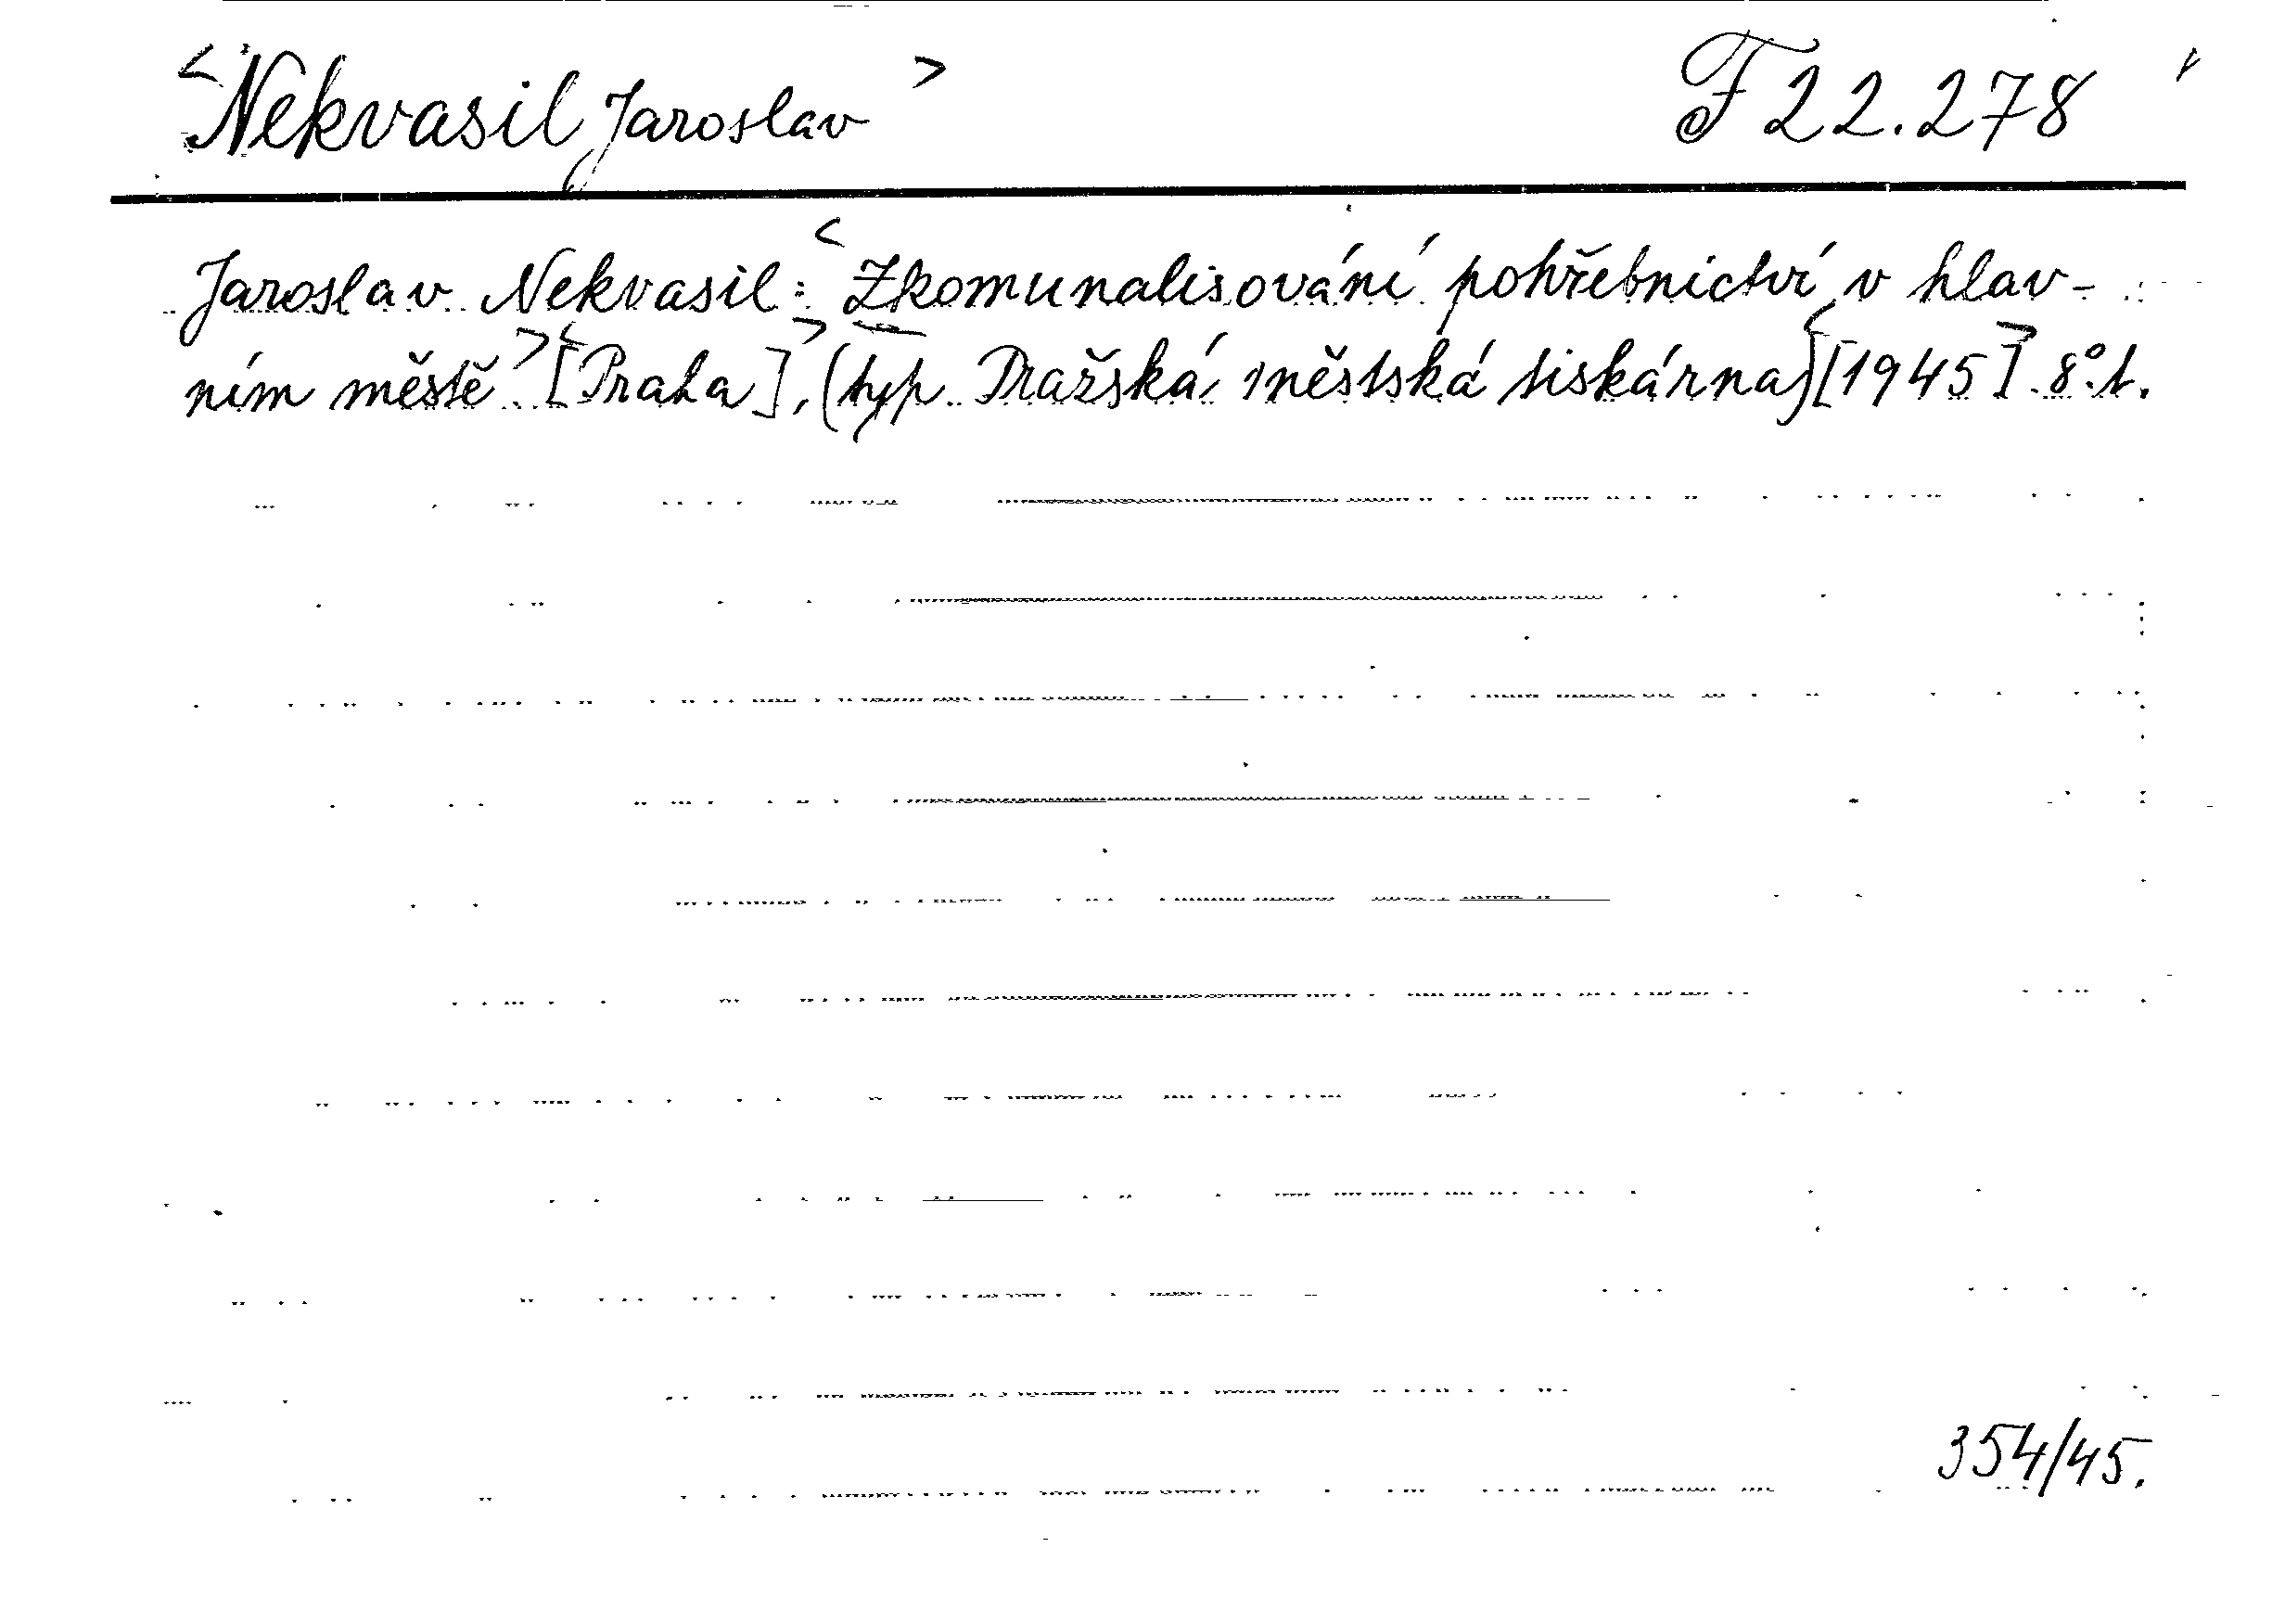 <Nekvasil, Jaroslav> F 22.278
Jaroslav Nekvasil: <Zkomunalisování pohřebnictví v hlav-
ním městě.> <[Praha],> (typ. Pražská městská tiskárna) <[1945]>. 8°. 1.
354/45.